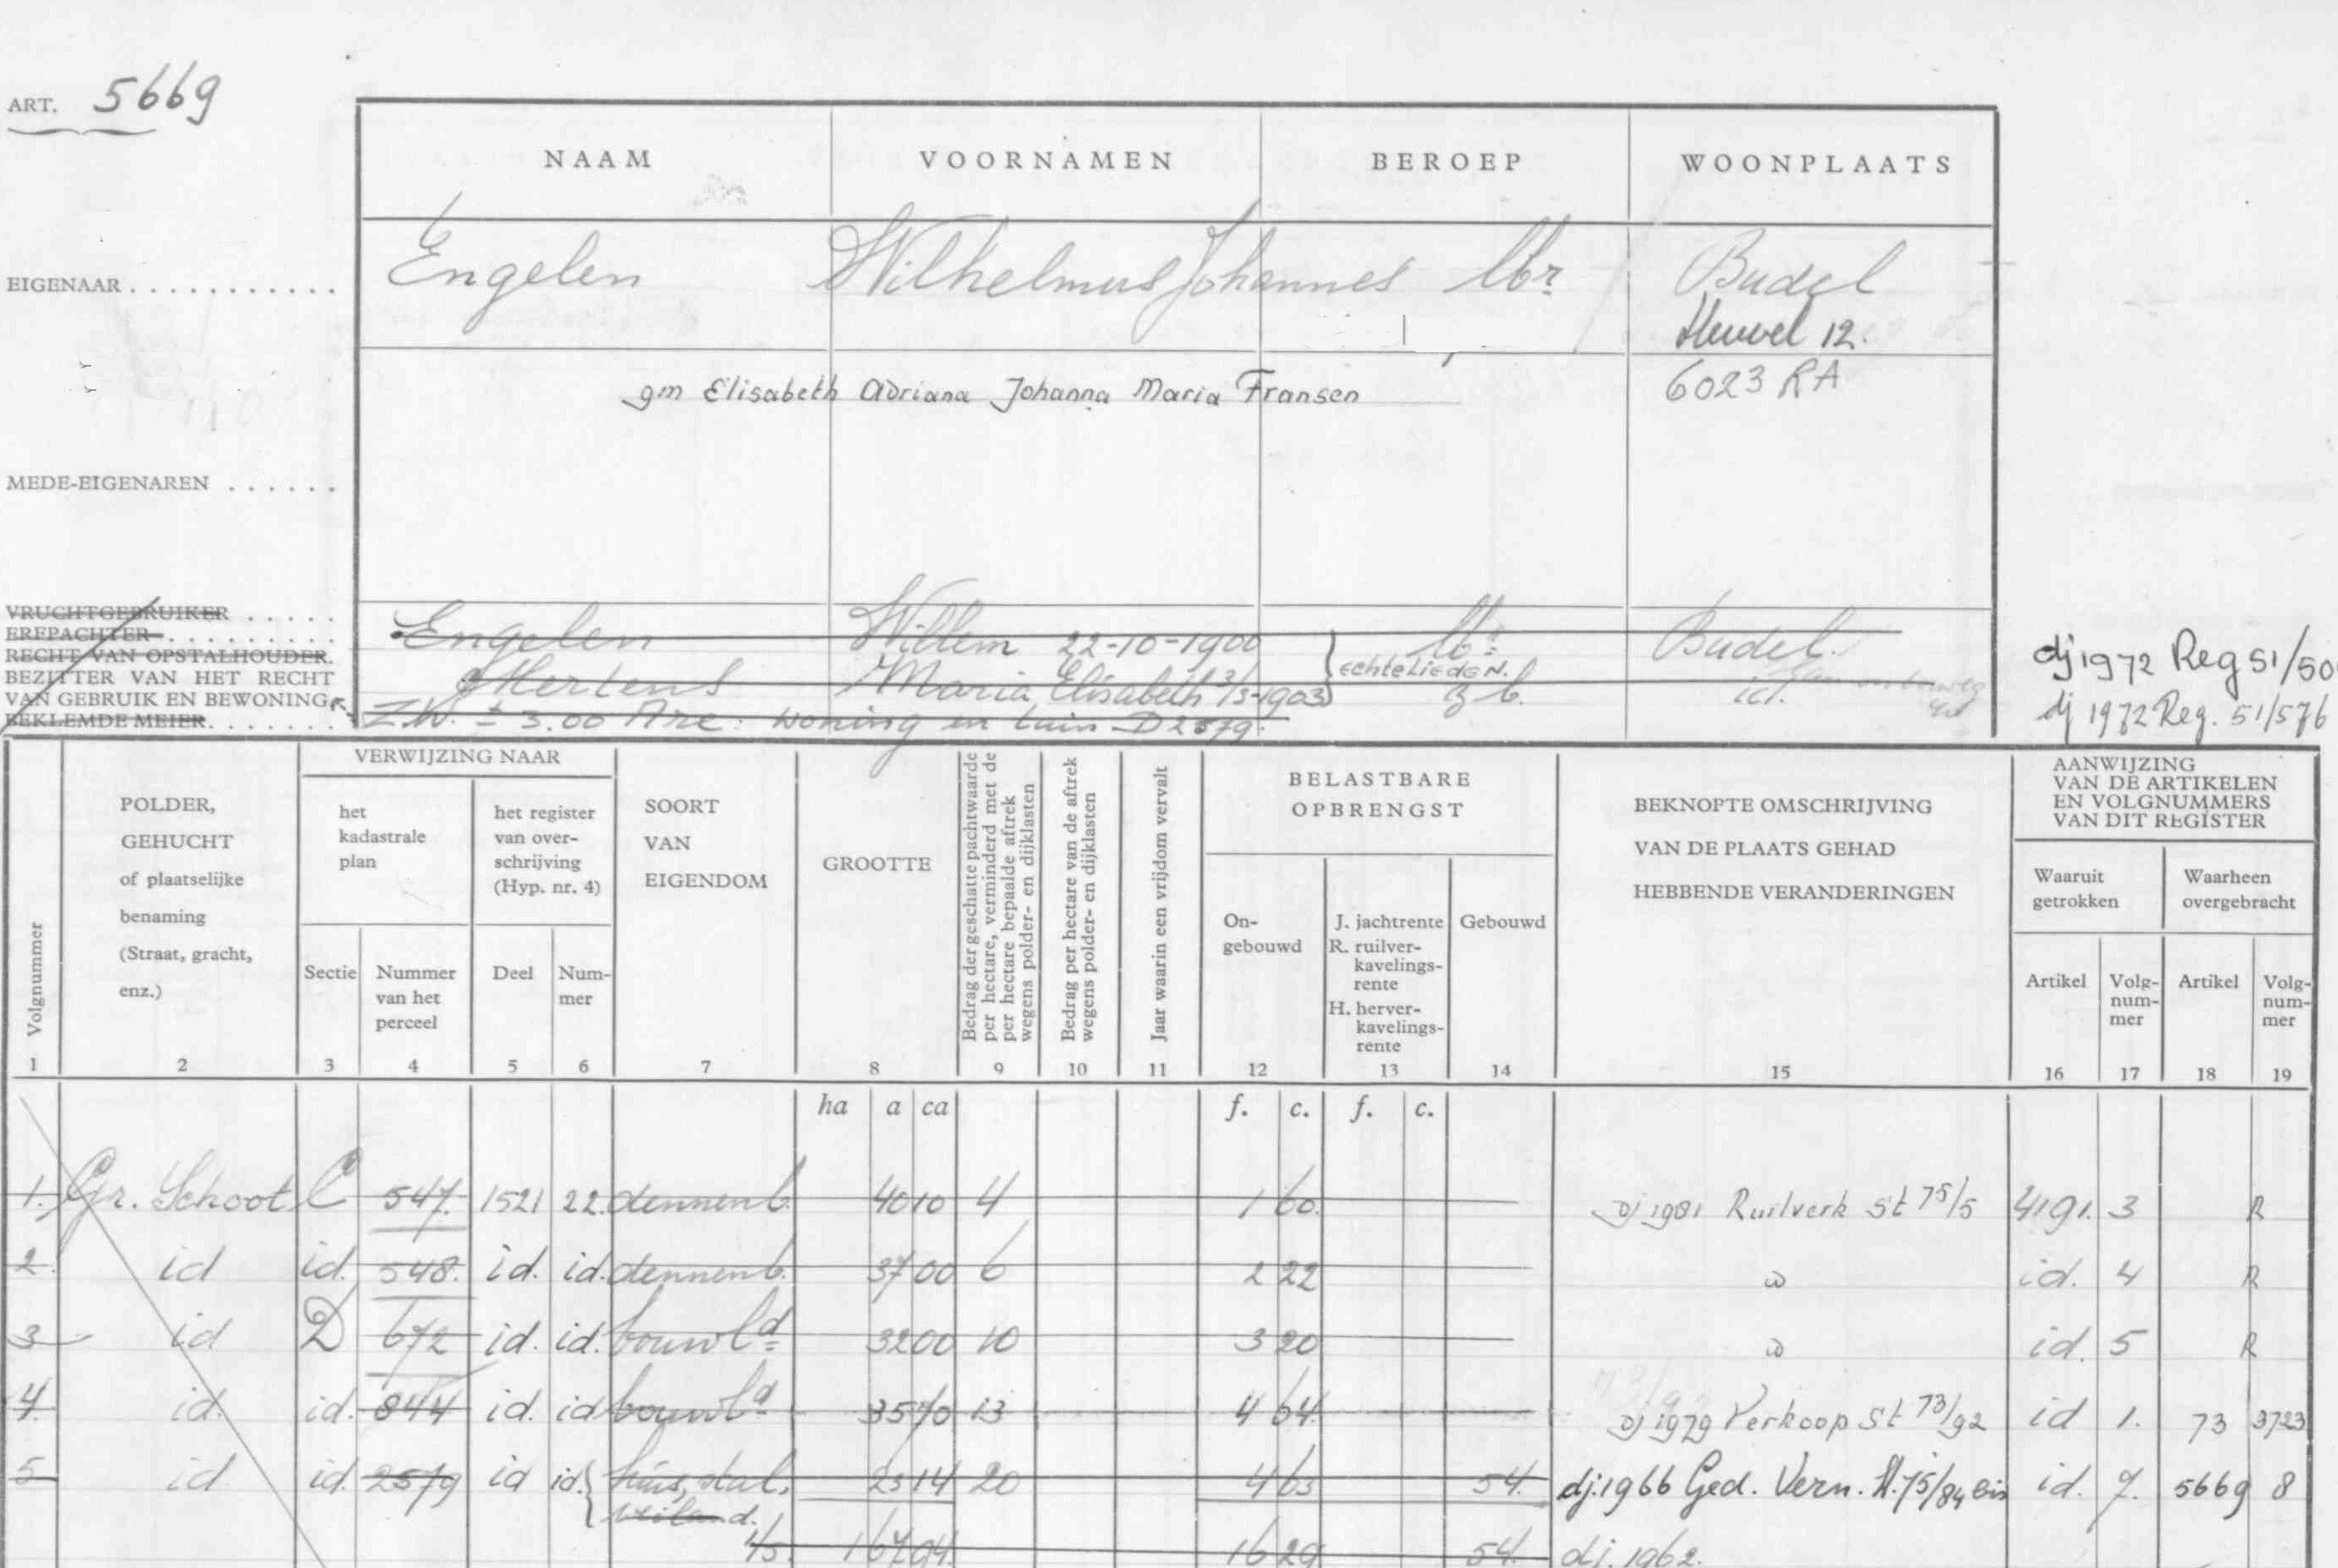 ART. 5669
NAAM VOORNAMEN BEROEP WOONPLAATS
EIGENAAR . . . . . . . . . . . Engelen Wilhelmus Johannes lbr Budel
Heuvel 12.
gm Elisabeth Adriana Johanna Maria Fransen 6023 RA
MEDE-EIGENAREN . . . . . .
VRUCHTGEBRUIKER . . . . . Engelen Willem 22-10-1900 lbr Budel.
ERFPACHTER . . . . . . . . .
RECHT VAN OPSTALHOUDER. echtelieden.
BEZITTER VAN HET RECHT Mertens Maria Elisabeth 2/3-1903 z b. id.
VAN GEBRUIK EN BEWONING
BEKLEMDE MEIER. . . . . . . Z.W. ± 3.00 Are: woning en tuin D 2579.
dj 1972 Reg 51/50
dj 1972 Reg. 51/576
Volgnummer
1
POLDER,
GEHUCHT
of plaatselijke
benaming
(Straat, gracht,
enz.)
2
VERWIJZING NAAR
het
kadastrale
plan
Sectie
3
Nummer
van het
perceel
4
het register
van over-
schrijving
(Hyp. nr. 4)
Deel
5
Num-
mer
6
SOORT
VAN
EIGENDOM
7
GROOTTE
8
Bedrag der geschatte pachtwaarde
per hectare, verminderd met de
per hectare bepaalde aftrek
wegens polder- en dijklasten
9
Bedrag per hectare van de aftrek
wegens polder- en dijklasten
10
Jaar waarin een vrijdom vervalt
11
BELASTBARE
OPBRENGST
On-
gebouwd
12
J. jachtrente
R. ruilver-
kavelings-
rente
H. herver-
kavelings-
rente
13
Gebouwd
14
BEKNOPTE OMSCHRIJVING
VAN DE PLAATS GEHAD
HEBBENDE VERANDERINGEN
15
AANWIJZING
VAN DE ARTIKELEN
EN VOLGNUMMERS
VAN DIT REGISTER
Waaruit
getrokken
Artikel
16
Volg-
num-
mer
17
Waarheen
overgebracht
Artikel
18
Volg-
num-
mer
19
ha a ca f. c. f. c.
1. Gr. Schoot C 547. 1521 22. dennenb. 40 10 4 1 60. dj 1981 Ruilverk St 75/5 4191. 3 R
2. id id. 548. id. id. dennenb. 37 00 6 2 22 id. 4 R
3 id D 672 id. id. bouwld 32 00 10 3 20 id. 5 R
4. id. id. 844 id. id bouwld 35 70 13 4 64. dj 1979 Verkoop St 73/92 id 1. 73 3723
5 id id. 2579 id id. huis, stal, 23 14 20 4 63 54. dj. 1966 Ged. Vern. St. 75/84 bis id. 7. 5669 8
weiland.
1/5. 1 67 94. 16 29 54. dj. 1962.